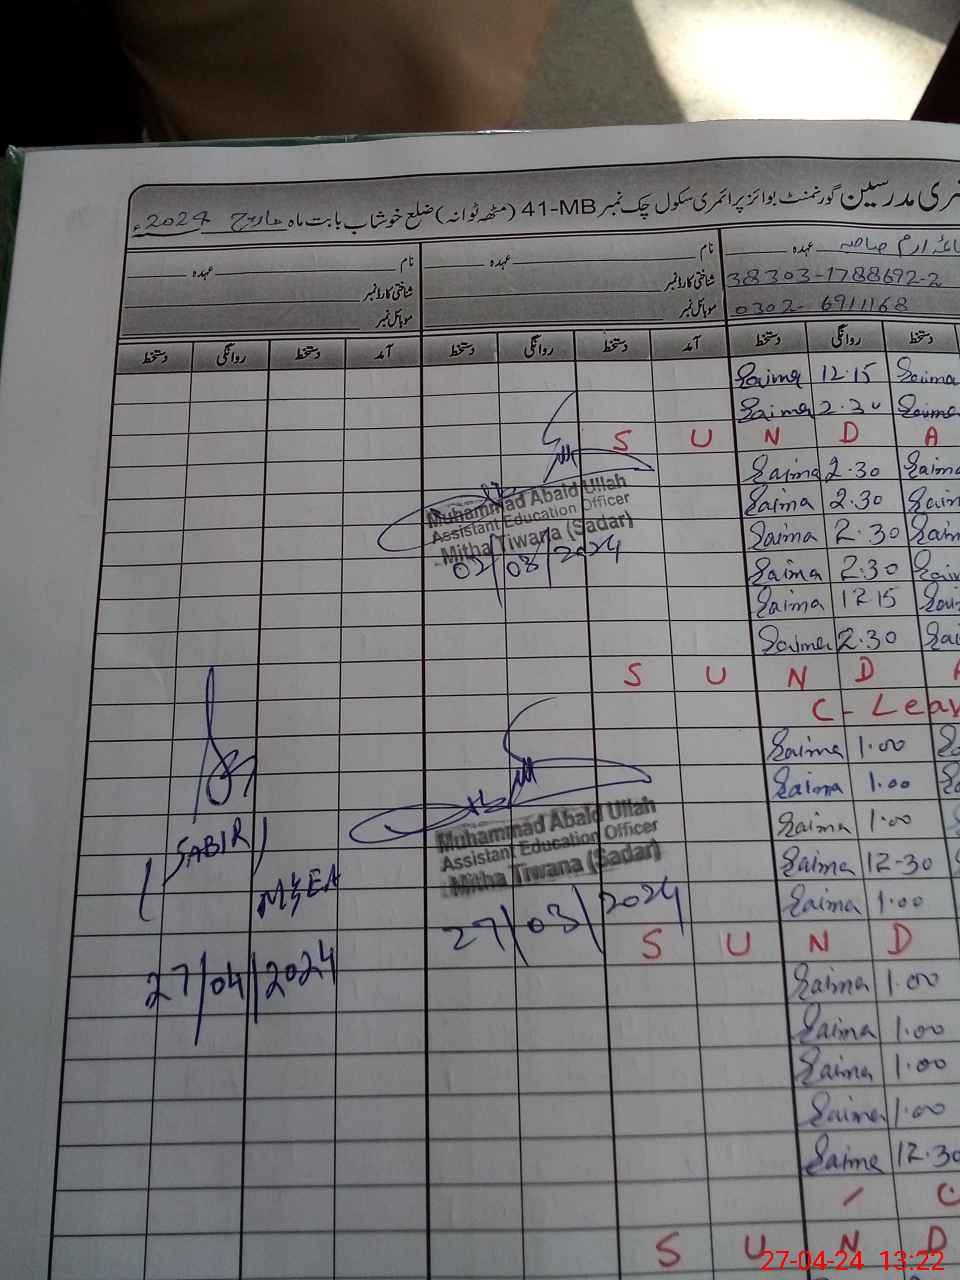 مدرسین گورنمنٹ بوائز پرائمری سکول چک نمبر 41-MB (مٹھہ ٹوانہ) ضلع خوشاب بابت ماہ مارچ 2024ء
نام عہدہ نام عہدہ عہدہ
شناختی کارڈ نمبر شناختی کارڈ نمبر 38303-1788692-2
موبائل نمبر موبائل نمبر 0302-6911168
دستخط روانگی دستخط آمد دستخط روانگی دستخط آمد دستخط روانگی دستخط
Saima 12.15 Saima
Saima 2.30 Saima
S U N D A
Saima 2.30 Saima
Saima 2.30
Saima 2.30
Saima 2.30
Saima 12.15
Saima 2.30
Muhammad Abaid Ullah
Assistant Education Officer
Mitha Tiwana (Sadar)
/03/2024
S U N D A
C-Leav
Saima 1.00
Saima 1.00
Saima 1.00
Saima 12-30
Saima 1.00
Muhammad Abaid Ullah
Assistant Education Officer
Mitha Tiwana (Sadar)
27/03/2024
(SABIR)
MEA
27/04/2024
S U N D
Saima 1.00
Saima 1.00
Saima 1.00
Saima 1.00
Saima 12.30
S U N D
27-04-24 13:22